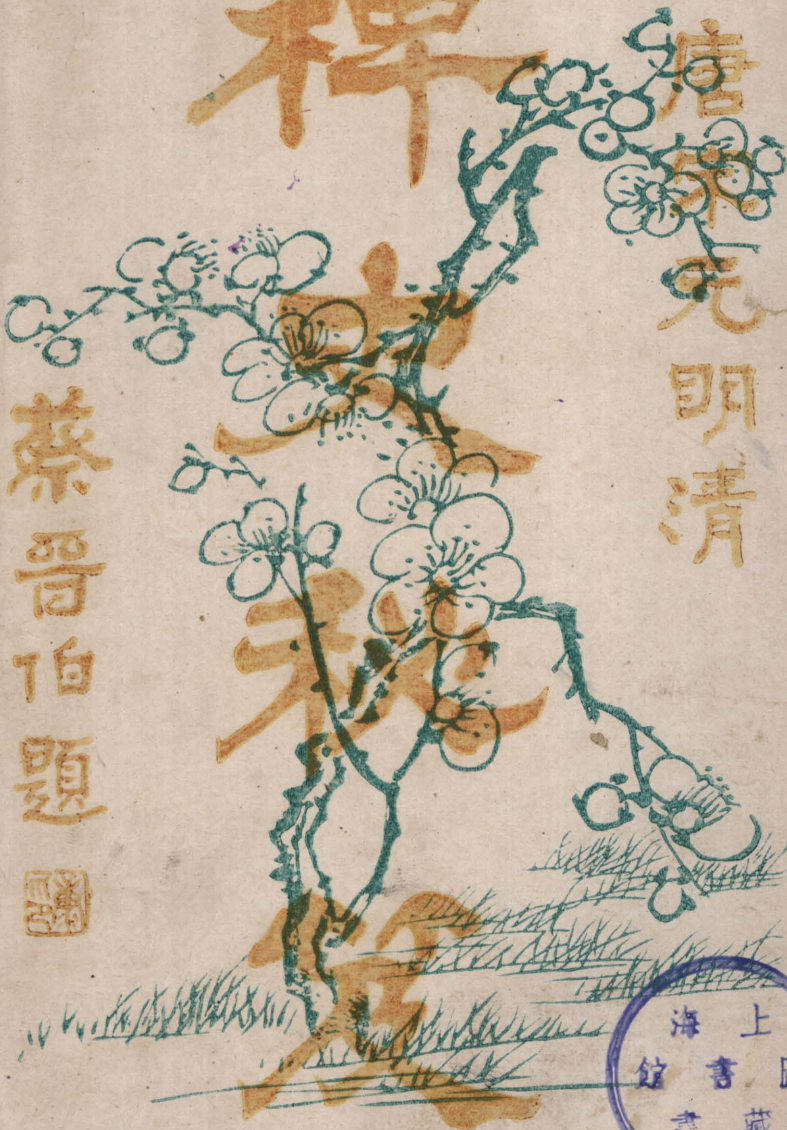 唐宋元明清
稗史秘笈
蔡晉伯題
上海
圖書館
藏書